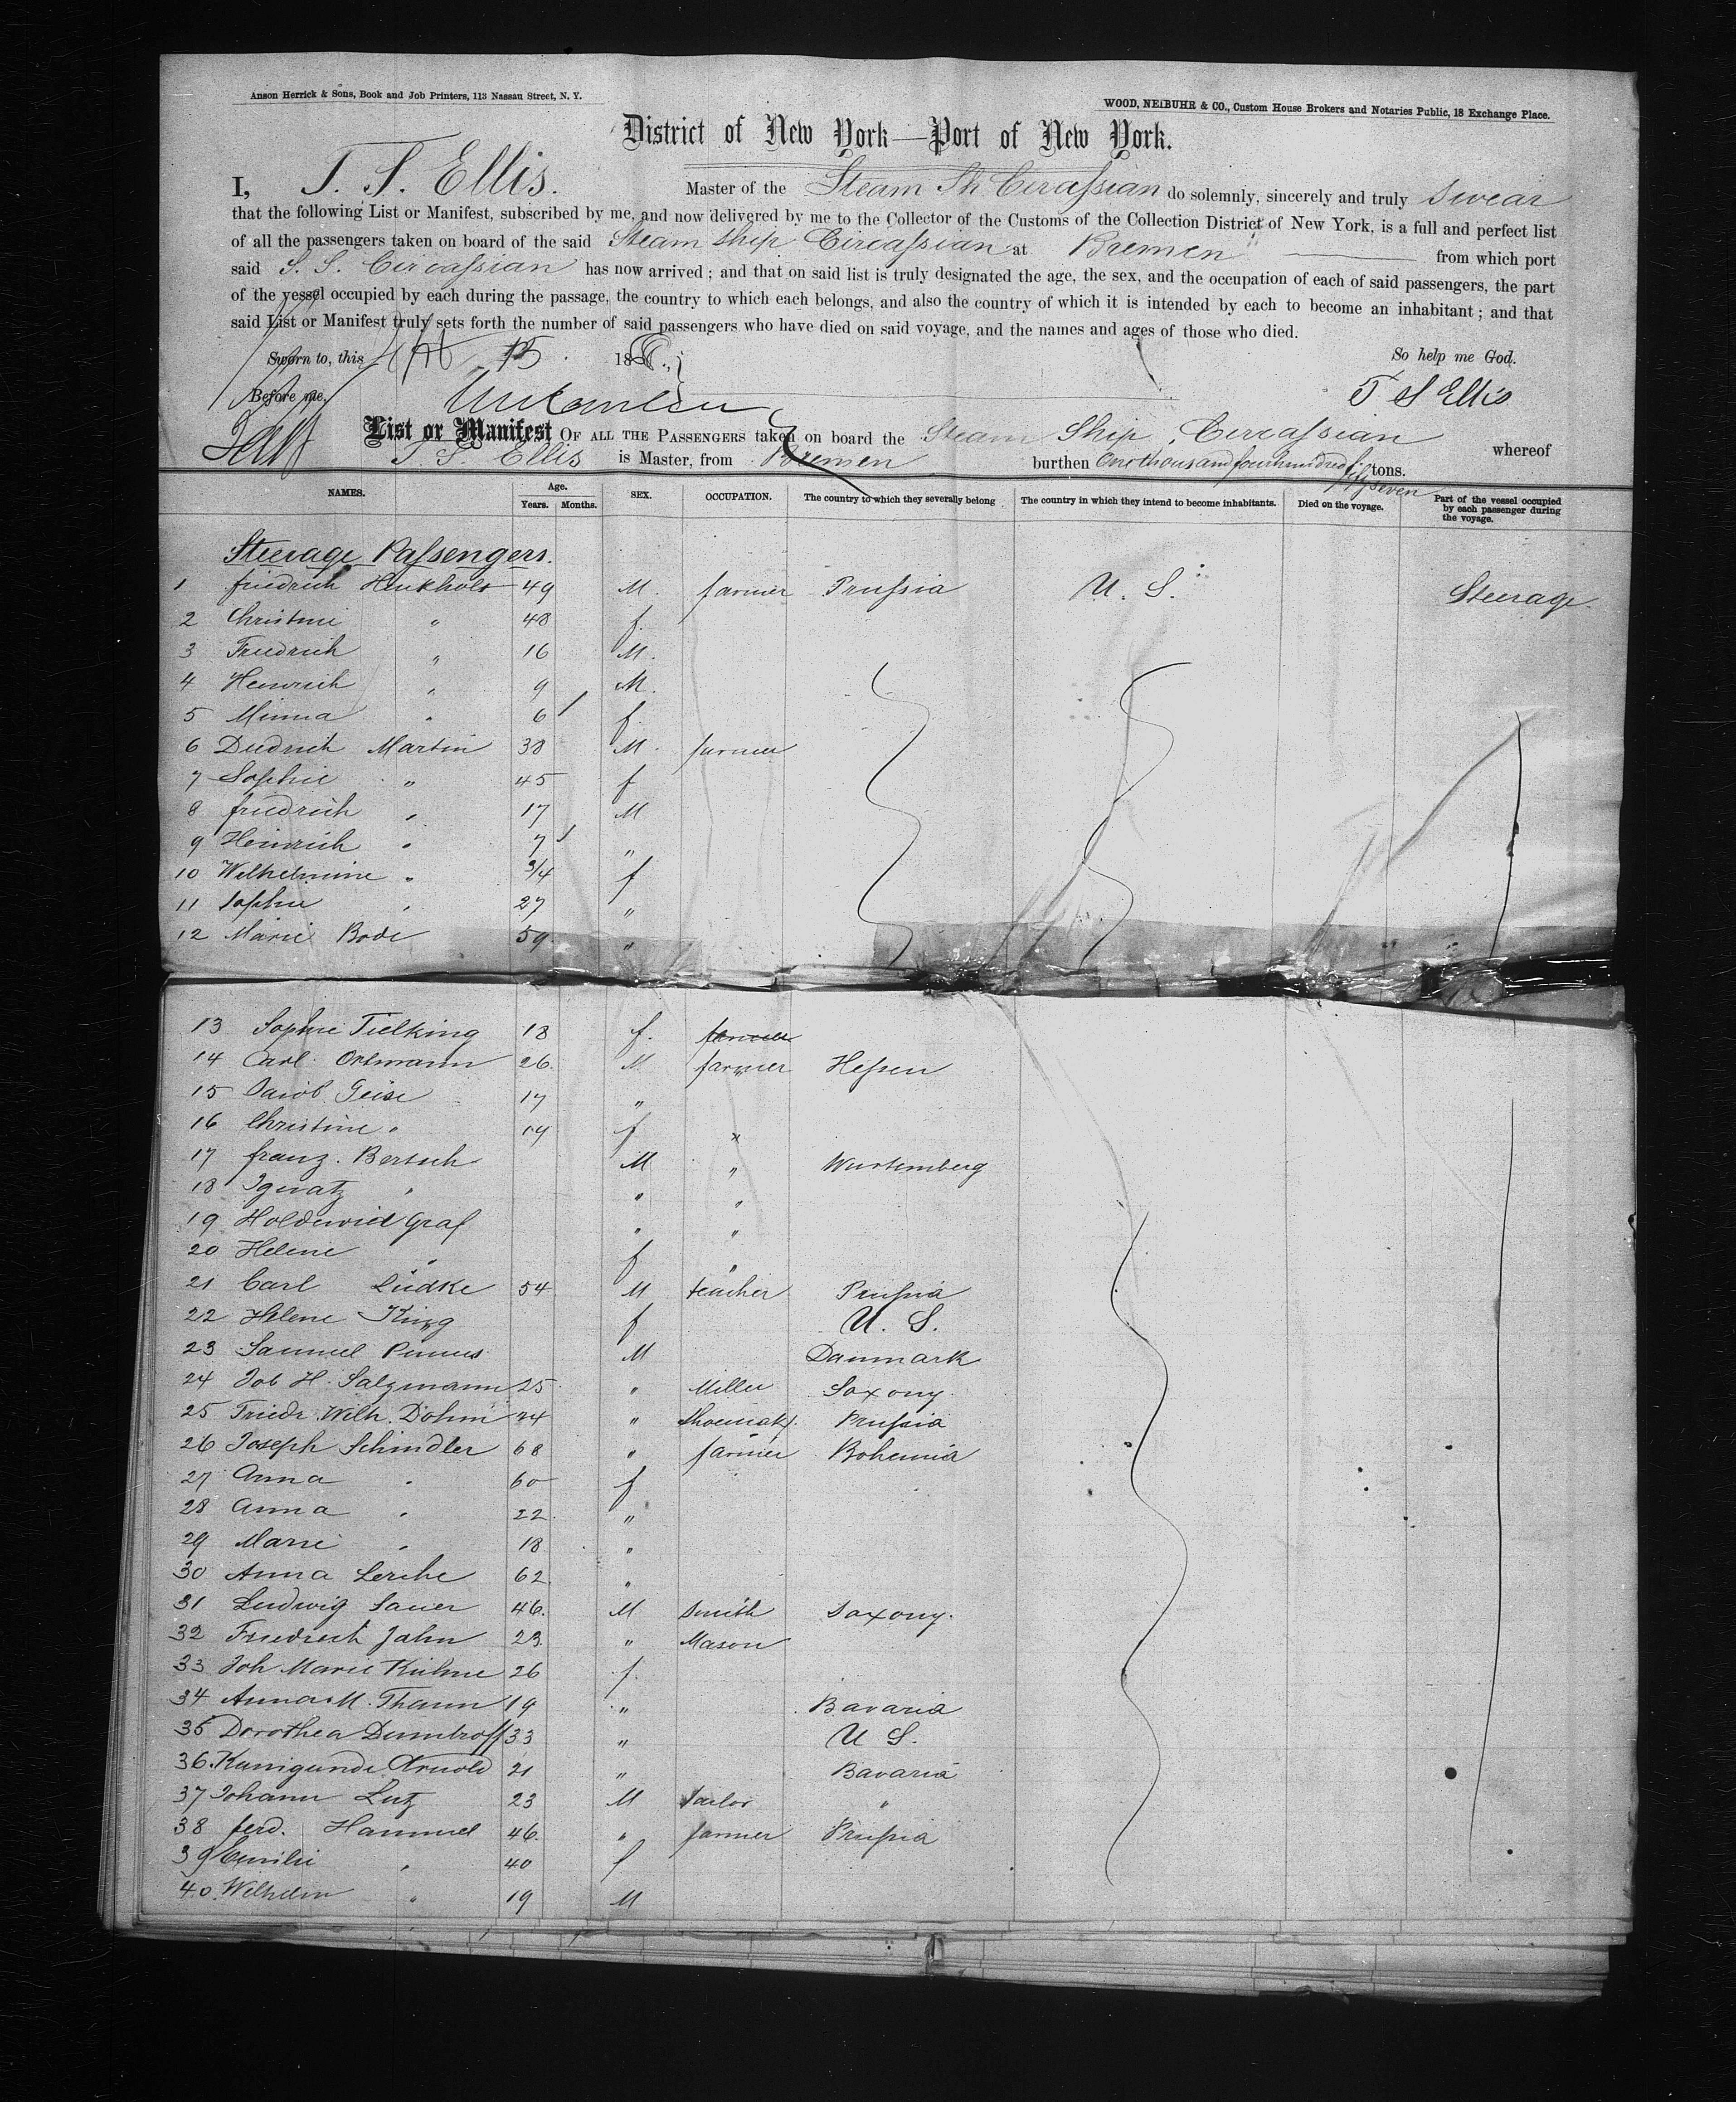 Anson Herrick & Sons, Book and Job Printers, 113 Nassau Street, N. Y.
WOOD, NEIBUHR & CO., Custom House Brokers and Notaries Public, 18 Exchange Place.
District of New York—Port of New York.
I, T. S. Ellis. Master of the Steam Sh Circassian do solemnly, sincerely and truly swear
that the following List or Manifest, subscribed by me, and now delivered by me to the Collector of the Customs of the Collection District of New York, is a full and perfect list
of all the passengers taken on board of the said Steam Ship Circassian at Bremen from which port
said S. S. Circassian has now arrived; and that on said list is truly designated the age, the sex, and the occupation of each of said passengers, the part
of the vessel occupied by each during the passage, the country to which each belongs, and also the country of which it is intended by each to become an inhabitant; and that
said List or Manifest truly sets forth the number of said passengers who have died on said voyage, and the names and ages of those who died.
Sworn to, this 15. 186 So help me God.
Before me, T S Ellis
List or Manifest OF ALL THE PASSENGERS taken on board the Steam Ship Circassian whereof
T. S. Ellis is Master, from Bremen burthen One thousand four hundred fifty seven tons.
NAMES. Age. Years. Months. SEX. OCCUPATION. The country to which they severally belong The country in which they intend to become inhabitants. Died on the voyage. Part of the vessel occupied by each passenger during the voyage.
Steerage Passengers.
1 friedrich Heukholt 49 M. farmer Prussia U. S. Steerage.
2 Christine " 48 f.
3 Friedrich " 16 M.
4 Heinrich " 9 M.
5 Minna " 6 f.
6 Diedrich Martin 38 M. farmer
7 Sophie " 45 f
8 friedrich " 17 M
9 Heinrich " 7 "
10 Wilhelmine " 3/4 f
11 Sophie " 27 "
12 Marie Bode 59 "
13 Sophie Tielking 18 f. farmer
14 Carl Ortmann 26 M farmer Hessen
15 Jacob Geise 17 "
16 Christine " 19 f "
17 franz. Bertsch M " Wurtemberg
18 Ignatz " " "
19 Holdewied Graf " "
20 Helene " f "
21 Carl Lüdke 54 M teacher Prussia
22 Helene King f U. S.
23 Samuel Pinnus M Danmark
24 Joh H. Salzmann 25 " Miller Saxony.
25 Friedr. Wilh. Dohm 24 " Shoemak. Prussia
26 Joseph Schindler 68 " farmer Bohemia
27 Anna " 60 f
28 Anna " 22 "
29 Marie " 18 "
30 Anna Lerche 62 "
31 Ludwig Sauer 46. M Smith Saxony.
32 Friedrich Jahn 23 " Mason
33 Joh Marie Kühne 26 f.
34 Anna M. Thann 19 " Bavaria
35 Dorothea Dumbroff 33 " U S.
36. Kunigunde Arnold 21 " Bavaria
37 Johann Lutz 23 M Tailor "
38 ferd. Hammel 46. " farmer Prussia
39 Emilie " 40 f
40. Wilhelm " 19 M